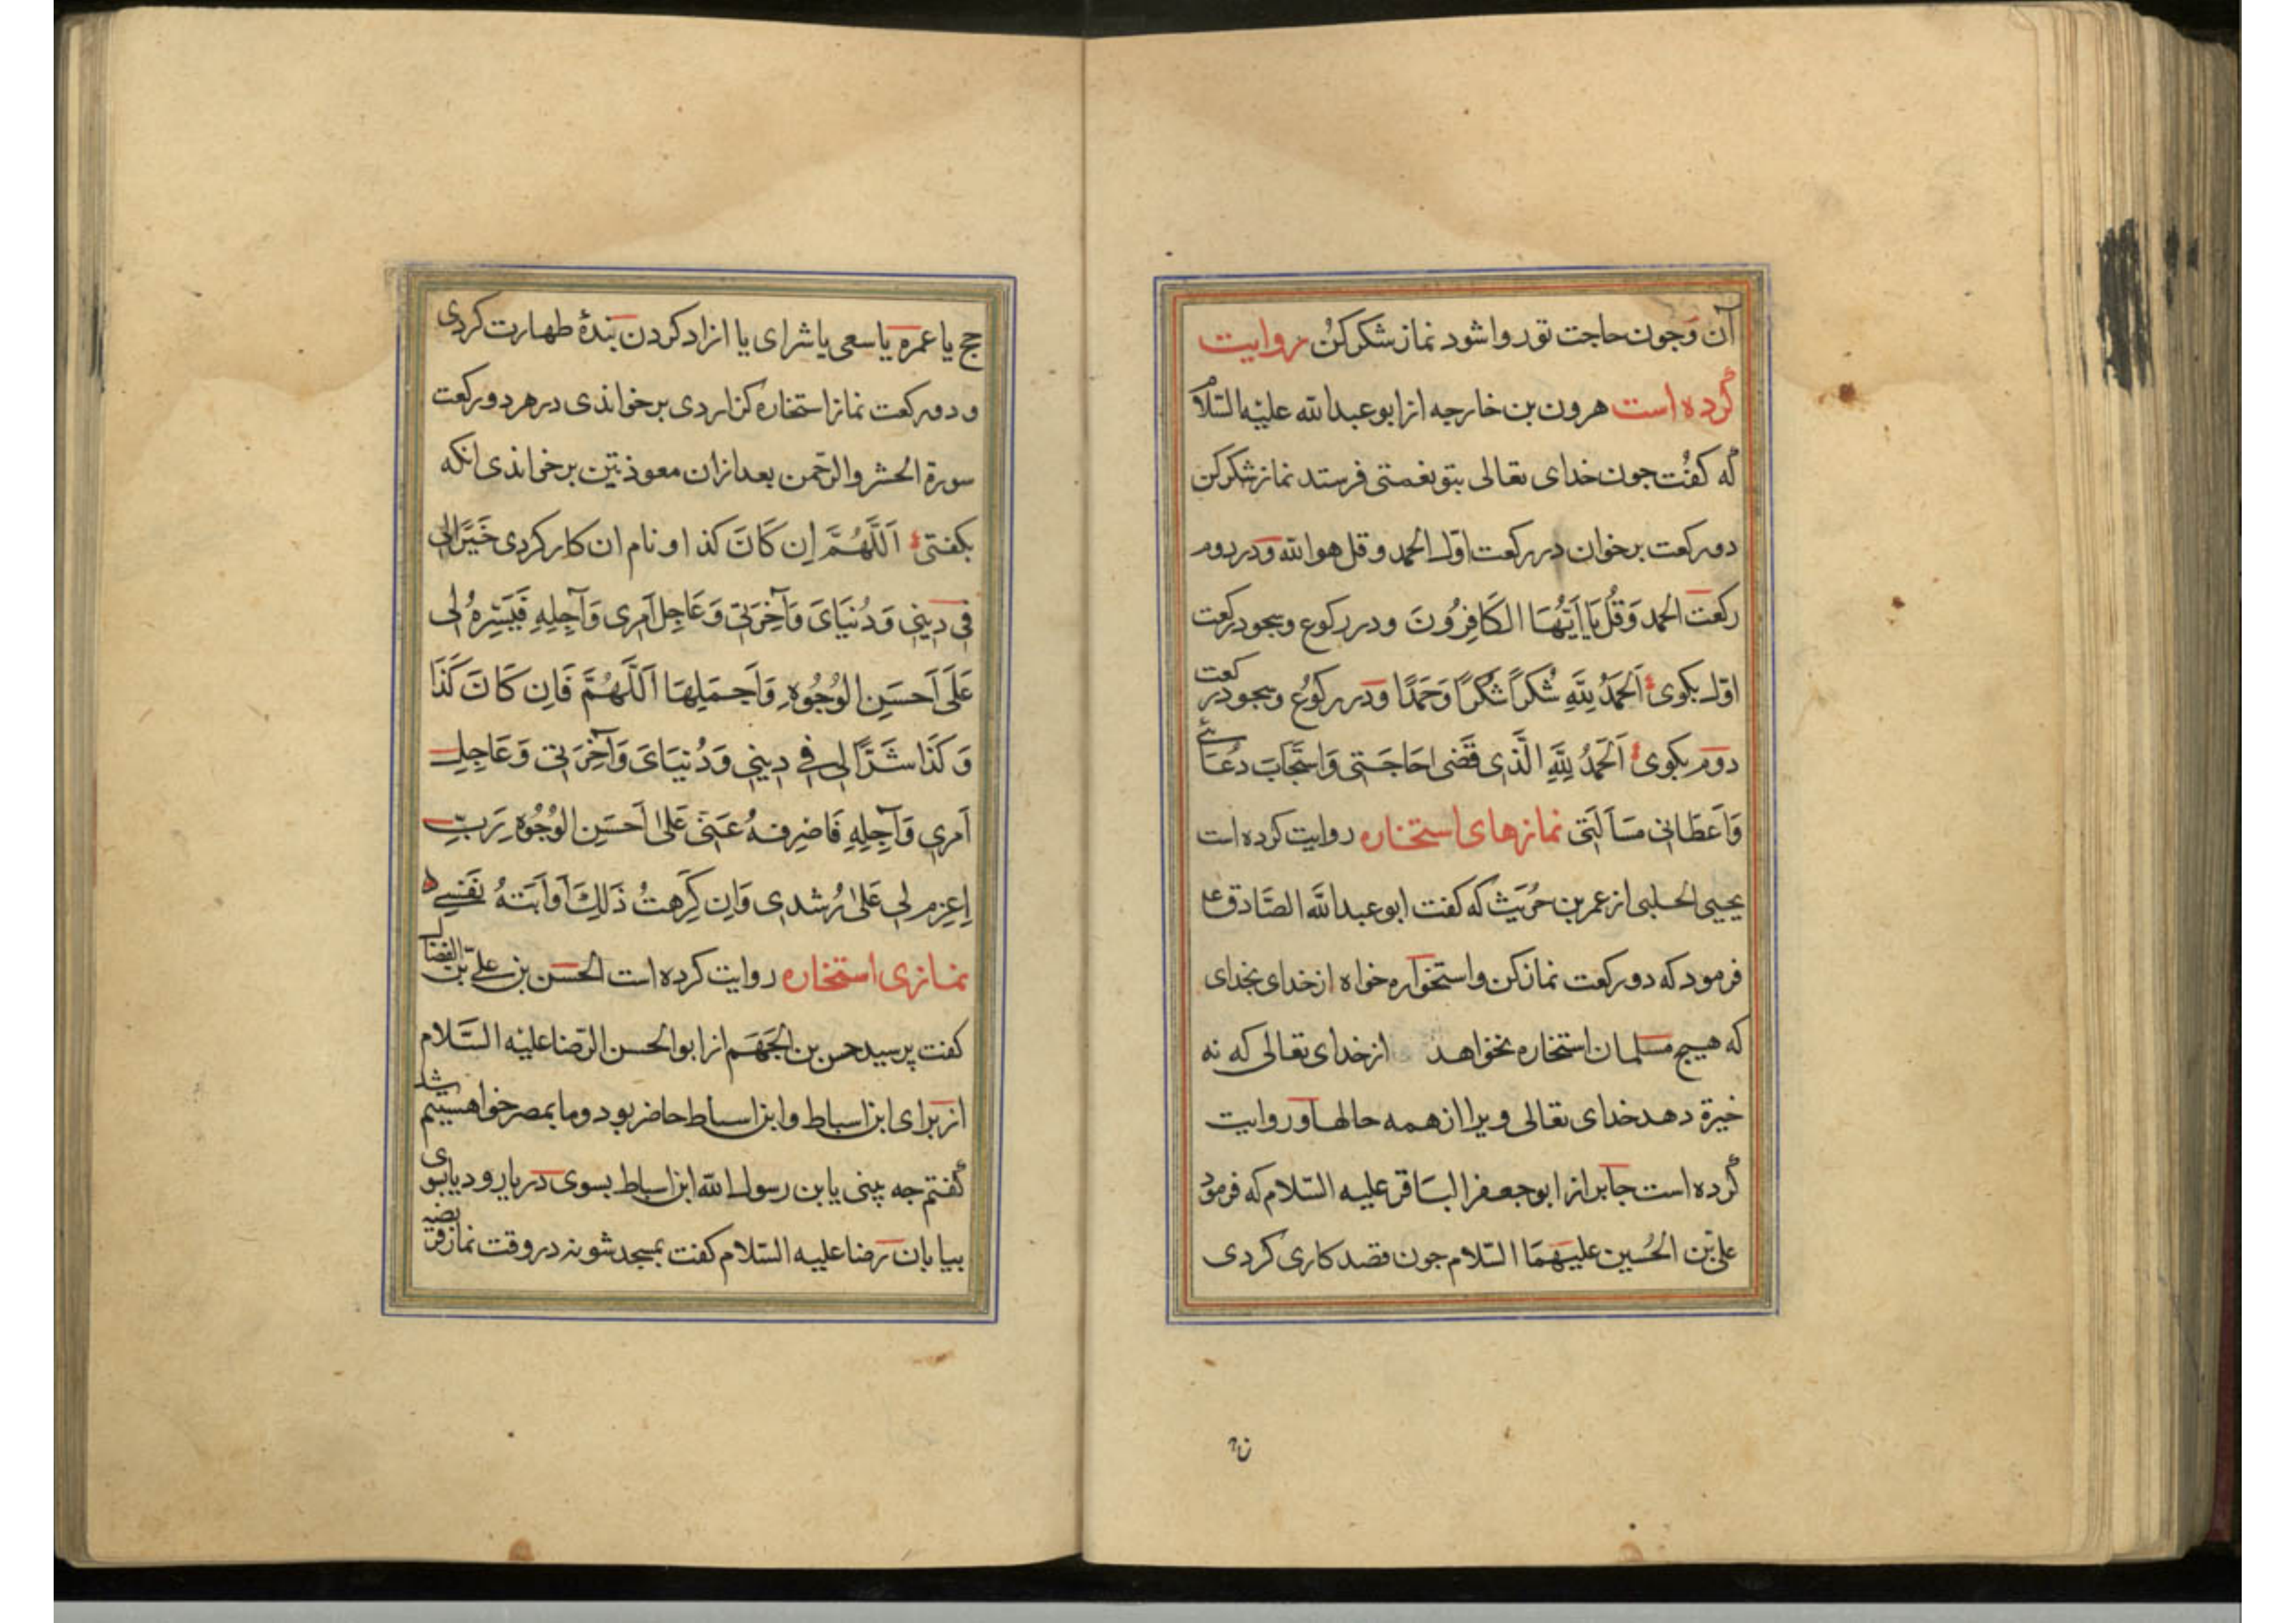 آن وَجون حاجت تو روا شود نماز شکر کنُ روایت
کرده است هرون بن خارجه از ابو عبدالله علیْه السّلام
که کفتْ جون خدای تعالی بتو نعمتی فرستد نماز شکر کن
دو رکعت برخوان در رکعت اوّل الحمد و قل هو الله وَدر دوم
رکعت الحمد وَقُل یَا اَیّهُا الکَافِرُونَ ودر رکوع وسجود رکعت
اوّل بکوی اَلحَمدُ لِلَّهِ شُکرًا شُکرًا وَحَمدًا وَدر رکوُع وسجود در رکعت
دوم بکوی اَلحَمدُ لِلَّهِ الَّذِی قَضٰی حَاجَتِی وَاستَجَابَ دُعَائے
وَاَعطَانِی مَسأَلَتِی نمازهای استخاره روایت کرده است
یحیی الحلبی از عمر بن حرُیَث که کفت ابو عبدالله الصَّادق ع
فرمود که دو رکعت نماز کن واستخواره خواه از خدای بخدای
که هیچ مسلمان استخاره نخواهد از خدای تعالی که نه
خیرة دهد خدای تعالی ویرا از همه حالها وروایت
کرده است جابر از ابو جعفر البَاقر علیه السّلام که فرمود
علی بن الحُسین علیهمَا السّلام جون قصد کاری کردی
حج یا عمره یا سعی یا شرای یا ازاد کردن بندهٔ طهارت کردی
و دو رکعت نماز استخاره کزاردی برخواندی در هر دو رکعت
سورة الحشر والرّحمن بعد ازان معوذتین برخواندی انکه
بکفتی اَللَّهُمَّ اِن کَانَ کذا و نام ان کار کردی خَیرًا لِی
فِی دِینِی وَدُنیَایَ وَآخِرَتِی وَعَاجِلِ اَمرِی وَآجِلِهِ فَیَسِّرهُ لِی
عَلَی اَحسَنِ الوُجُوهِ وَاَجمَلِهَا اَللَّهُمَّ فَاِن کَانَ کَذَا
وَکَذَا شَرًّا لِی فِی دِینِی وَدُنیَایَ وَآخِرَتِی وَعَاجِلِ
اَمرِی وَآجِلِهِ فَاصرِفهُ عَنِّی عَلیٰ اَحسَنِ الوُجُوهِ رَبِّ
اِعزِم لِی عَلیٰ رُشدِی وَاِن کَرِهتُ ذَلِکَ اَو اَبَتهُ نَفسِی
نمازی استخاره روایت کرده است الحَسن بن علی بن الفضال
کفت پرسید حسن بن الجَهَم از ابو الحسن الرّضا علیْه السَّلام
از برای ابن اسباط وابن اسباط حاضر بود وما بمصر خواهیم شد
کفتم جه بینی یا بن رسول الله ابن اسباط بسوی دریا رود یا بسوی
بیابان رضا علیه السّلام کفت بمسجد شو نه در وقت نماز فریضه